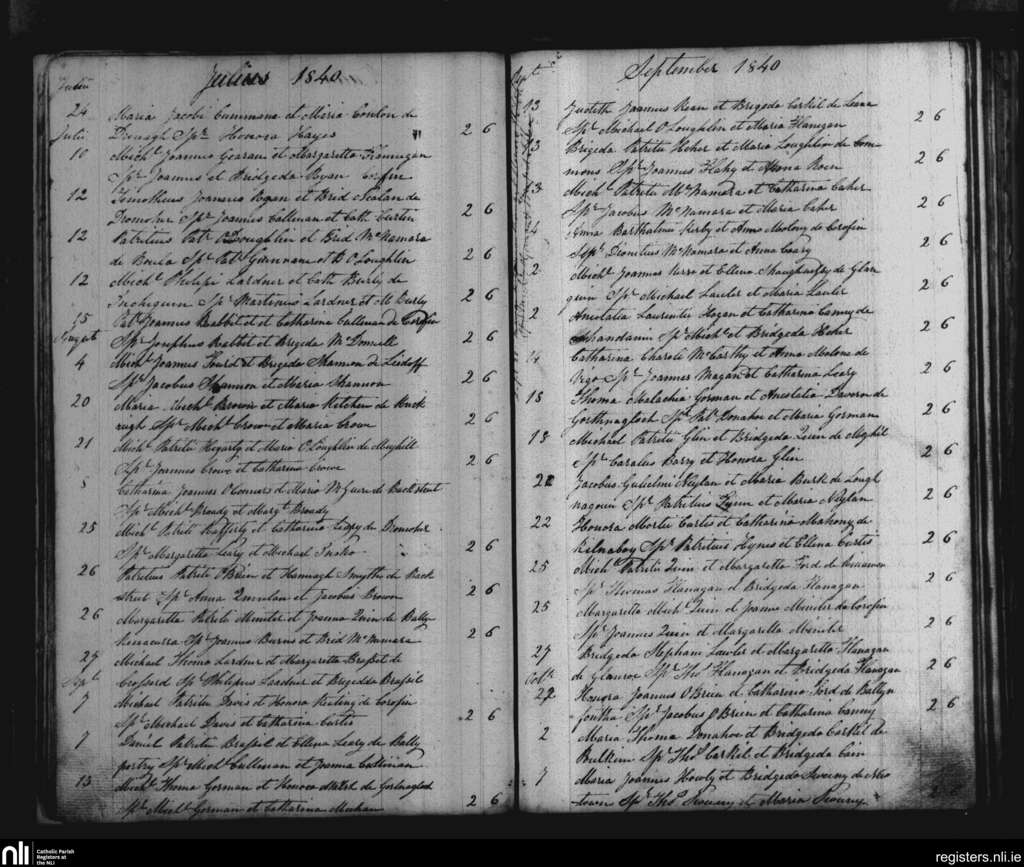 Julius 1840
Juin
24 Maria Jacobi Cummins et Maria Conlon de
Juli Sp. Honora Hayes 2 6
10 Mich. Joannes Gearan et Margaretta Flannigan
Sp. Joannes et Bridgeda Ryan Corofin
12 Timotheus Joannes Hogan et Brid Nealan de
Dromoher Sp. Joannes Cullinan et Cath. Curtin 2 6
12 Patritius Pat. O Loughlin et Brid McNamara
de Sp. Pat. et B O Loughlin 2 6
12 Mich. Philipi Lardner et Cath Burly de
Inchiquin Sp. Martinus Lardner et M Burly 2 6
15 Pat. Joannes Rabbit et Catharina Cullinan de Corofin
August Sp. Josephus Rabbit et Brigeda McDonnell 2 6
4 Mich. Joannes Fourd et Brigeda Shannon de
Sp. Jacobus Shannon et Maria Shannon 2 6
20 Maria Mich. Brown et Maria Ketchen de
Sp. Mich. Crow et Maria Crow 2 6
21 Mich. Patritii Hegarty et Maria O Loughlin de
Sp. Joannes Crowe et Catharina Crowe 2 6
5 Catharina Joannes O Connors et Maria McGuire de Backstreet
Sp. Mich. Broady et Marg. Broady
25 Mich. Patritii Rafferty et Catharina Leary de Dromoher
Sp. Margaretta Leary et Michael 2 6
26 Patritius Patritii O Brien et Hannagh Smythe de Back
street Sp. Anna Quinlan et Jacobus Brown 2 6
26 Margaretta Patritii Miniter et Joanna Quin de Bally
Sp. Joannes Burns et Brid McNamara 2 6
27 Michael Thoma Lardner et Margaretta Brassil de
Sept. Crossard Sp. Philipus Lardner et Brigedda Brassil
7 Michael Patritii Davis et Honora Keating de Corofin
Sp. Michael Davis et Catharina Curtis 2 6
7 Daniel Patritii Brassil et Ellena Leary de Bally
portry Sp. Mich. Cullinan et Joanna Cullinan
13 Mich. Thoma Gorman et Honora de
Sp. Mich. Gorman et Catharina Meehan 2 6
September 1840
Sept.
13 Judith Joannes Kean et Brigeda Carkil de Leana
Sp. Michael O Loughlin et Maria Flanigan 2 6
13 Brigeda Patritii Heher et Maria Loughlin de Com
mons Sp. Joannes Flahy et Anna Roen 2 6
13 Mich. Patritii McNamara et Catharina Caher
Sp. Jacobus McNamara et Maria Caher 2 6
4 Anna Bartholmei Kerby et Anna Molony de Corofin
Sp. Dionitius McNamara et Anna Leary 2 6
2 Mich. Joannes et Ellena Shaughnessy de Glan
quin Sp. Michael Lawler et Maria Lawler 2 6
2 Anestatia Laurentii Hogan et Catharina Canny de
Sp. Mich. et Bridgeda Heher 2 6
14 Catharina Charoli McCarthy et Anna Malone de
Sp. Joannes Magan et Catharina Leary 2 6
18 Thoma Malachia Gorman et Anestatia Davoren de
Sp. Pat. Donahoe et Maria Gorman 2 6
13 Michael Patritii Glin et Bridgeda Quin de
Sp. Caralus Barry et Honora Glin 2 6
22 Jacobus Gulielmi Neylan et Maria Burk de Lough
nagoun Sp. Patritius Quin et Maria Neylan 2 6
22 Honora Mortii Curtis et Catharina Mahony de
Kilnaboy Sp. Patritius Hynes et Ellena Curtis 2 6
25 Mich. Patritii Quin et Margaretta Ford de
Sp. Thomas Flanagan et Bridgeda Flanagan 2 6
25 Margaretta Mich Quin et Joanna Miniter de Corofin
Sp. Joannes Quin et Margaretta Miniter 2 6
27 Bridgeda Stephani Lawler et Margaretta Flanagan
Octb. de Sp. Tho. Flanagan et Bridgeda Flanagan 2 6
22 Honora Joannes O Brien et Catharina Ford de Ballyn
Sp. Jacobus O Brien et Catharina Canny 2 6
2 Maria Thoma Donahoe et Bridgeda Carkil de
Sp. Tho. Carkil et Bridgeda Cain
7 Maria Joannes Howly et Bridgeda Sweeny de
town Sp. Tho. Sweeny et Maria Sweeny
nli Catholic Parish
Registers at
the NLI
registers.nli.ie